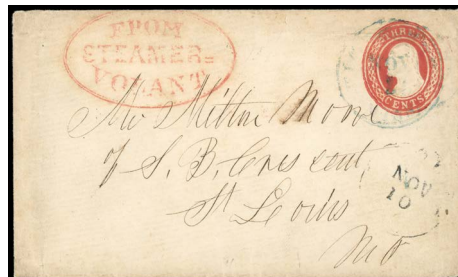 FROM
STEAMER=
VOLANT
THREE
CENTS
NOV
Mr Milton
of S. B. Crescent,
St Louis
Mo
NOV
10